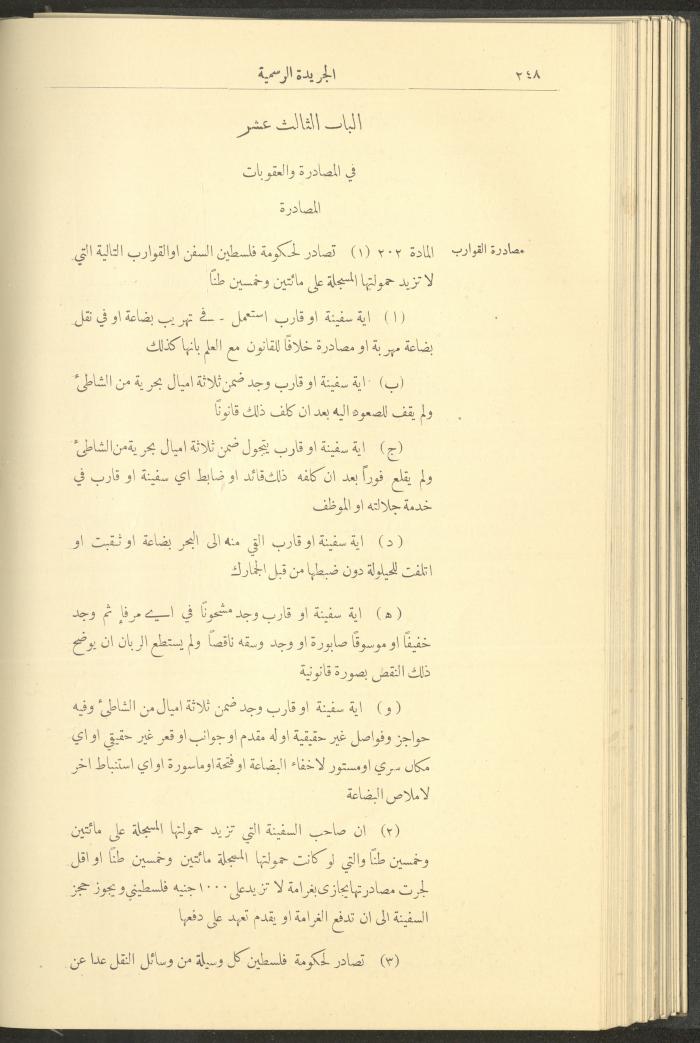 ٢٤٨ الجريدة الرسمية
الباب الثالث عشر
في المصادرة والعقوبات
المصادرة
مصادرة القوارب
المادة ٢٠٢ (١) تصادر لحكومة فلسطين السفن اوالقوارب التالية التي
لا تزيد حمولتها المسجلة على مائتين وخمسين طنًا
(١) اية سفينة او قارب استعمل - في تهريب بضاعة او في نقل
بضاعة مهربة او مصادرة خلافًا للقانون مع العلم بانها كذلك
(ب) اية سفينة او قارب وجد ضمن ثلاثة اميال بحرية من الشاطئ
ولم يقف للصعود اليه بعد ان كلف ذلك قانونًا
(ج) اية سفينة او قارب يتجول ضمن ثلاثة اميال بحرية من الشاطئ
ولم يقلع فوراً بعد ان كلفه ذلك قائد او ضابط اي سفينة او قارب في
خدمة جلالته او الموظف
(د) اية سفينة او قارب القي منه الى البحر بضاعة او ثقبت او
اتلفت للحيلولة دون ضبطها من قبل الجمارك
(ه) اية سفينة او قارب وجد مشحونًا في اي مرفإ ثم وجد
خفيفًا او موسوقًا صابورة او وجد وسقه ناقصًا ولم يستطع الربان ان يوضح
ذلك النقص بصورة قانونية
(و) اية سفينة او قارب وجد ضمن ثلاثة اميال من الشاطئ وفيه
حواجز وفواصل غير حقيقية اوله مقدم او جوانب او قعر غير حقيقي او اي
مكان سري او مستور لاخفاء البضاعة او فتحة اوماسورة او اي استنباط اخر
لاملاص البضاعة
(٢) ان صاحب السفينة التي تزيد حمولتها المسجلة على مائتين
وخمسين طنًا والتي لو كانت حمولتها المسجلة مائتين وخمسين طنًا او اقل
لجرت مصادرتها يجازى بغرامة لا تزيد على ١٠٠٠ جنيه فلسطيني ويجوز حجز
السفينة الى ان تدفع الغرامة او يقدم تعهد على دفعها
(٣) تصادر لحكومة فلسطين كل وسيلة من وسائل النقل عدا عن